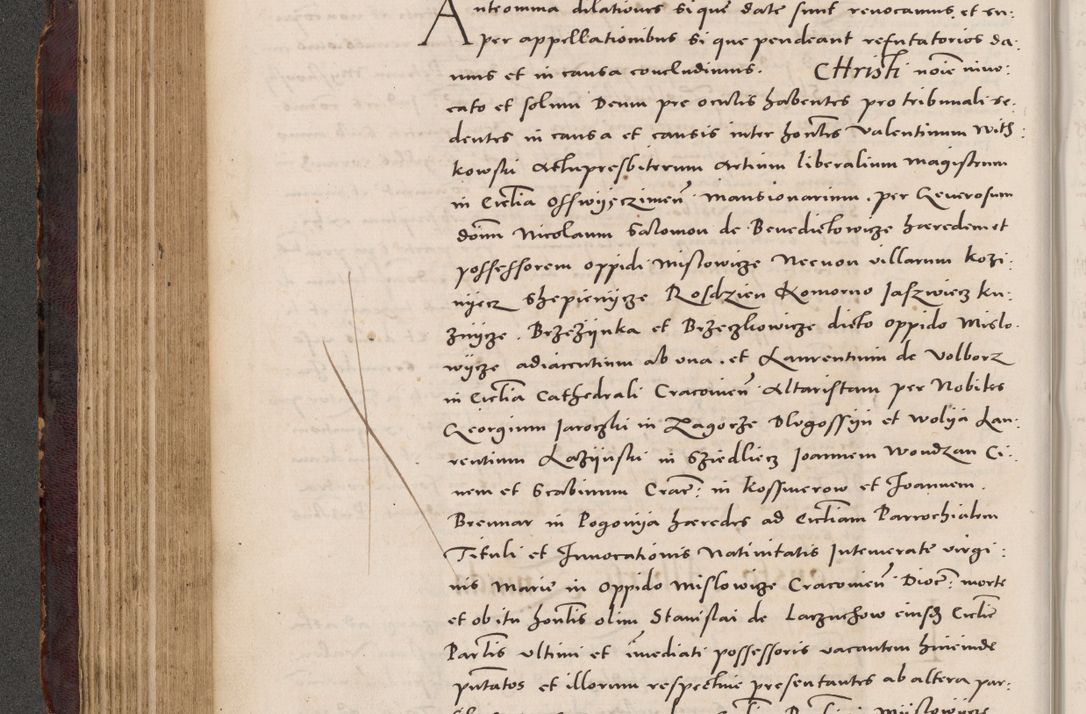 Anteomnia dilationes si que date sunt revocamus et su:
per appellationibus si que pendeant refutatorios da:
mus et in causa concludimus. CHristi noie invo:
cato et solum Deum pre oculis habentes pro tribunali se:
dentes in causa et causis inter hontes Valentinum With:
kowski Archipresbiterum Artium liberalium Magistrum
in Ecclia Osswijeczimen Mansionarium. per Generosum
donm Nicolaum Salomon de Benedictowicze hæredem et
possessorem oppidi Mislowicze Necnon villarum Kozi:
nijecz Shepienijcze Rosdzien Komorno Jaszwiecz Ku:
znijcze. Brzezijnka et Brzeczkowicze dicto oppido Mislo.
wijcze adiacentium ab una. et Laurentium de Volborz
in Ecclia Cathedrali Cracovien Altaristam per Nobiles
Georgium Jaroczki in Zagorze Dlvgossijn et Wolija Lau:
rentium Lazijnski in Sziedliecz Joannem Wondzan Ci:
vem et Scabinum Crac: in Kossuerow et Joannem.
Brennar in Pogonija hæredes ad Eccliam Parrochialem
Tituli et Invocationis Nativitatis Intemerate virgi:
nis Marie in oppido Mislowicze Cracovien Dioc: morte
et obitu hontis olim Stanislai de Laczuchow eiusd Ecclie
Parlis ultimi et imediati possessoris vacantem hincinde
pntatos et illorum respective presentantes ab altera par: